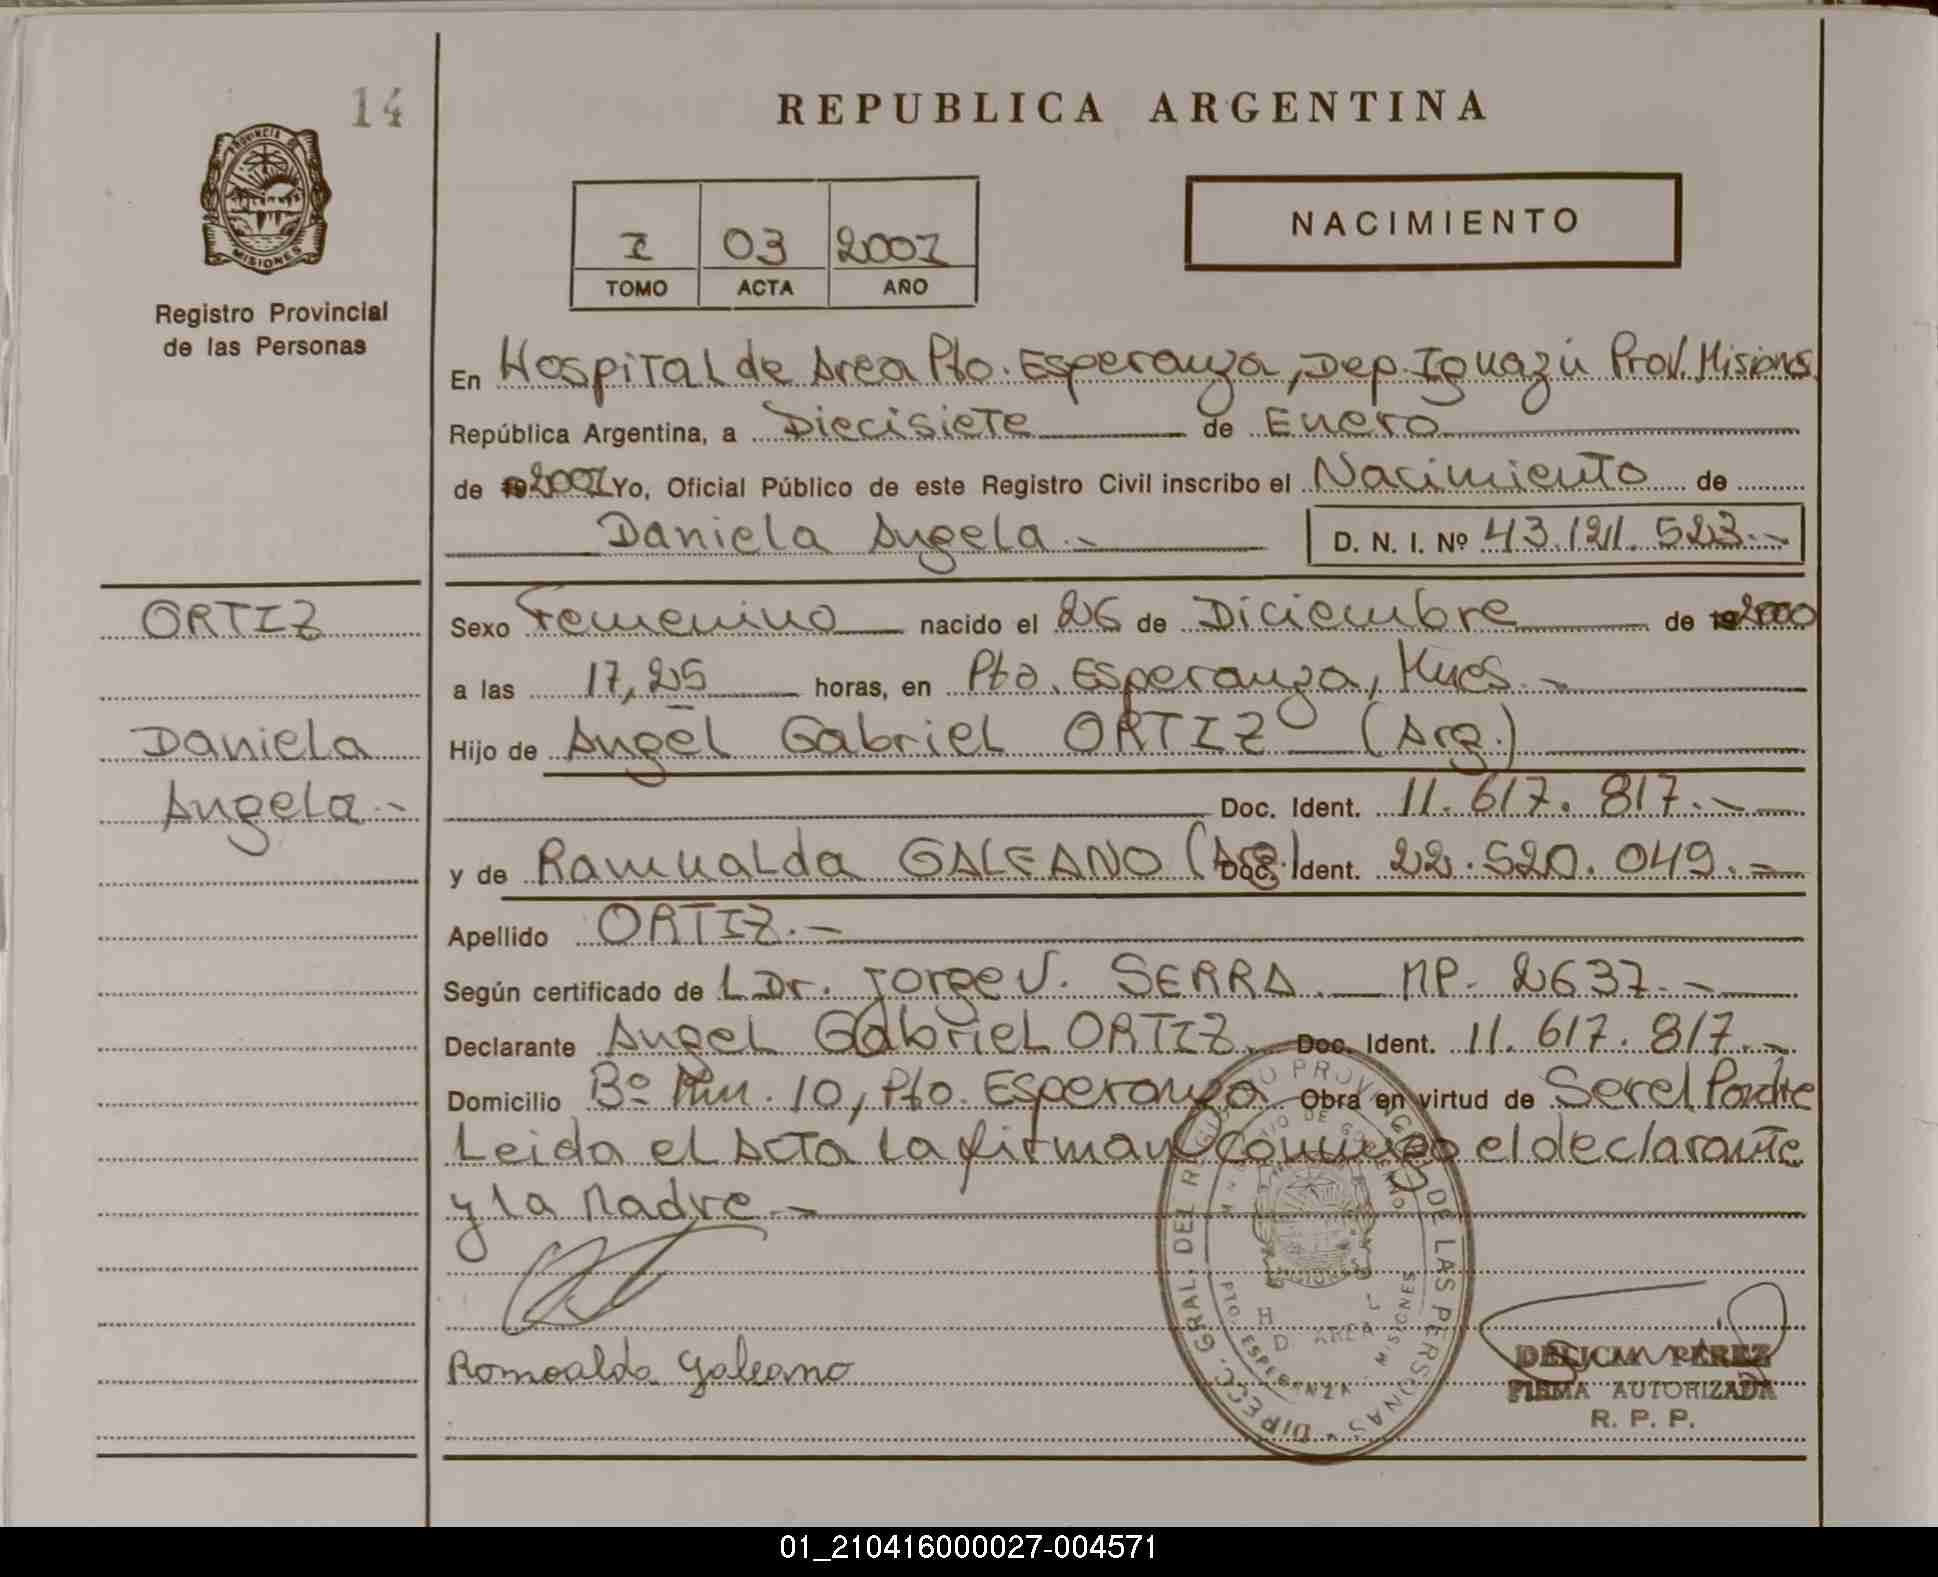 14
REPUBLICA ARGENTINA
PROVINCIA DE MISIONES
NACIMIENTO
I 03 2001
TOMO ACTA AÑO
Registro Provincial
de las Personas
En Hospital de Area Pto. Esperanza, Dep. Iguazú Prov. Misiones
República Argentina, a Diecisiete de Enero
de 192001 Yo, Oficial Público de este Registro Civil inscribo el Nacimiento de
Daniela Angela.-
D. N. I. Nº 43.121.523.-
ORTIZ
Daniela
Angela.-
Sexo Femenino nacido el 26 de Diciembre de 192000
a las 17,25 horas, en Pto. Esperanza, Mnes.-
Hijo de Angel Gabriel ORTIZ (Arg.)
Doc. Ident. 11.617.817.-
y de Ramualda GALEANO (Arg.) Doc. Ident. 22.520.049.-
Apellido ORTIZ.-
Según certificado de L Dr. Jorge V. SERRA. MP. 2637.-
Declarante Angel Gabriel ORTIZ. Doc. Ident. 11.617.817.-
Domicilio Bº 10, Pto. Esperanza Obra en virtud de Ser el Padre
Leida el Acta la firman conmigo el declarante
y la Madre.-
Romoalda Galeano
DIRECC. GRAL. DEL REGISTRO PROVINCIAL DE LAS PERSONAS
MINISTERIO DE GOBIERNO
MISIONES
H L
D. AREA
PTO. ESPERANZA - MISIONES
DELICIA PEREZ
FIRMA AUTORIZADA
R. P. P.
01_210416000027-004571